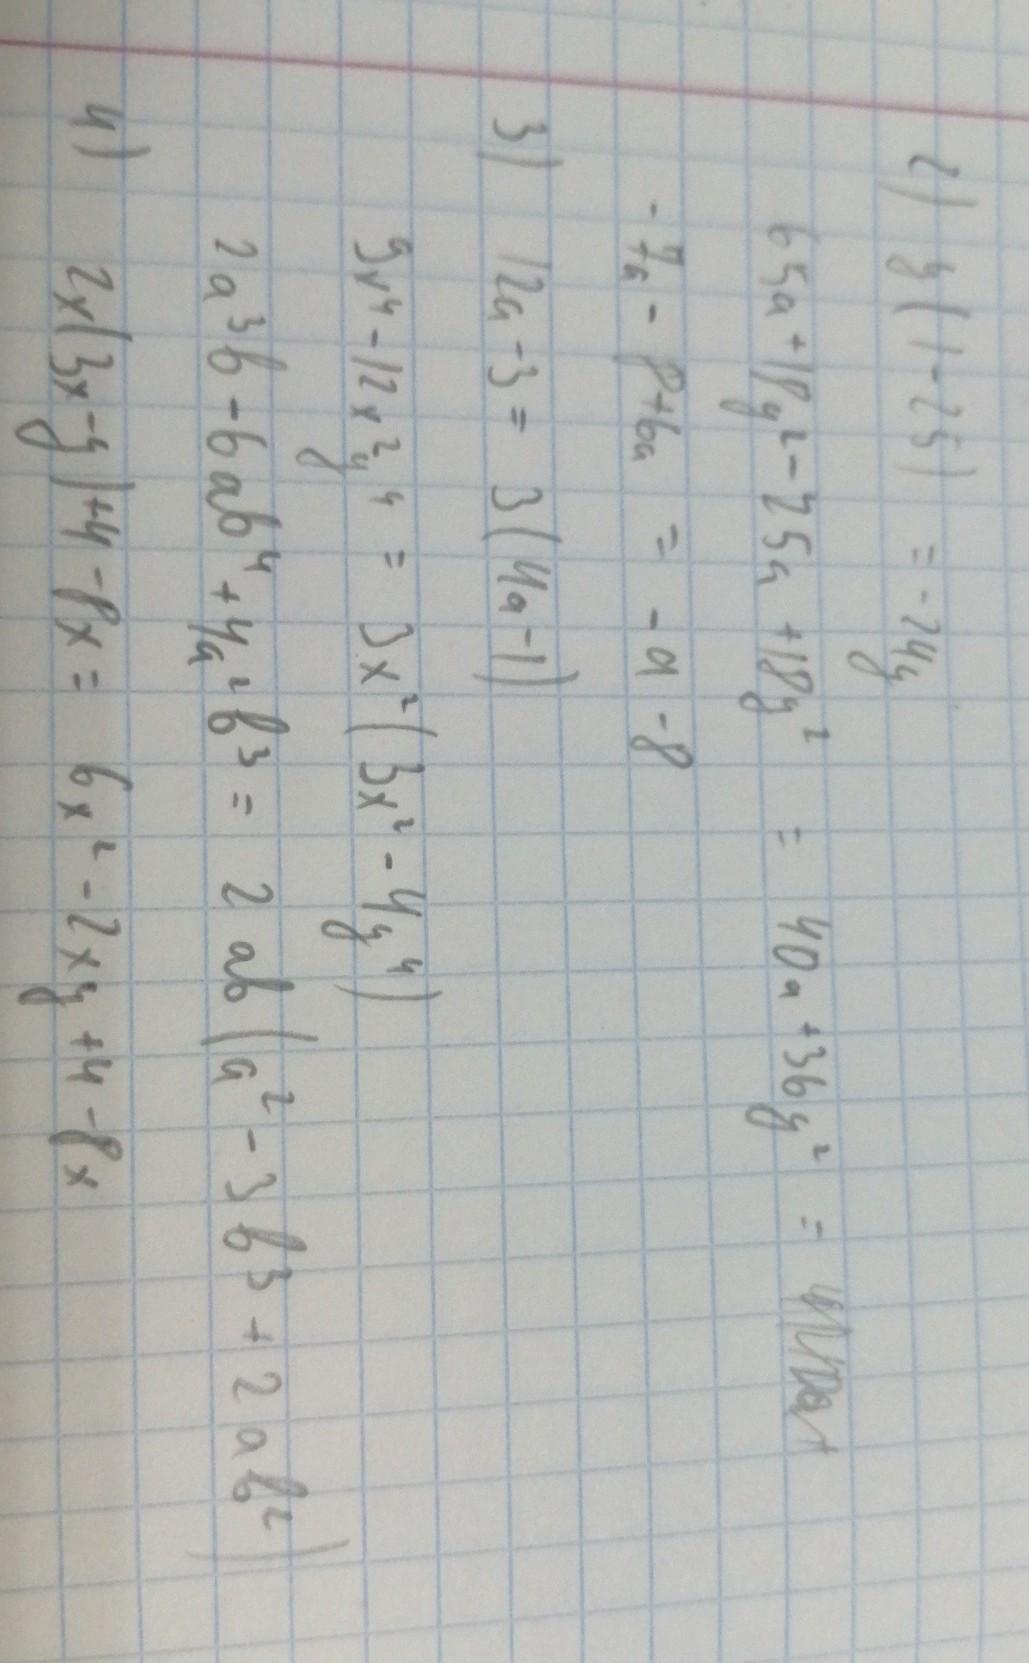 2) y(1-25) = -24y
65a+18y²-25a+18y² = 40a+36y² =
-7a-8+6a = -a-8
3) 12a-3= 3(4a-1)
9x⁴-12x²y⁴ = 3x²(3x²-4y⁴)
2a³b-6ab⁴+4a²b³= 2ab(a²-3b³+2ab²)
4) 2x(3x-y)+4-8x= 6x²-2xy+4-8x